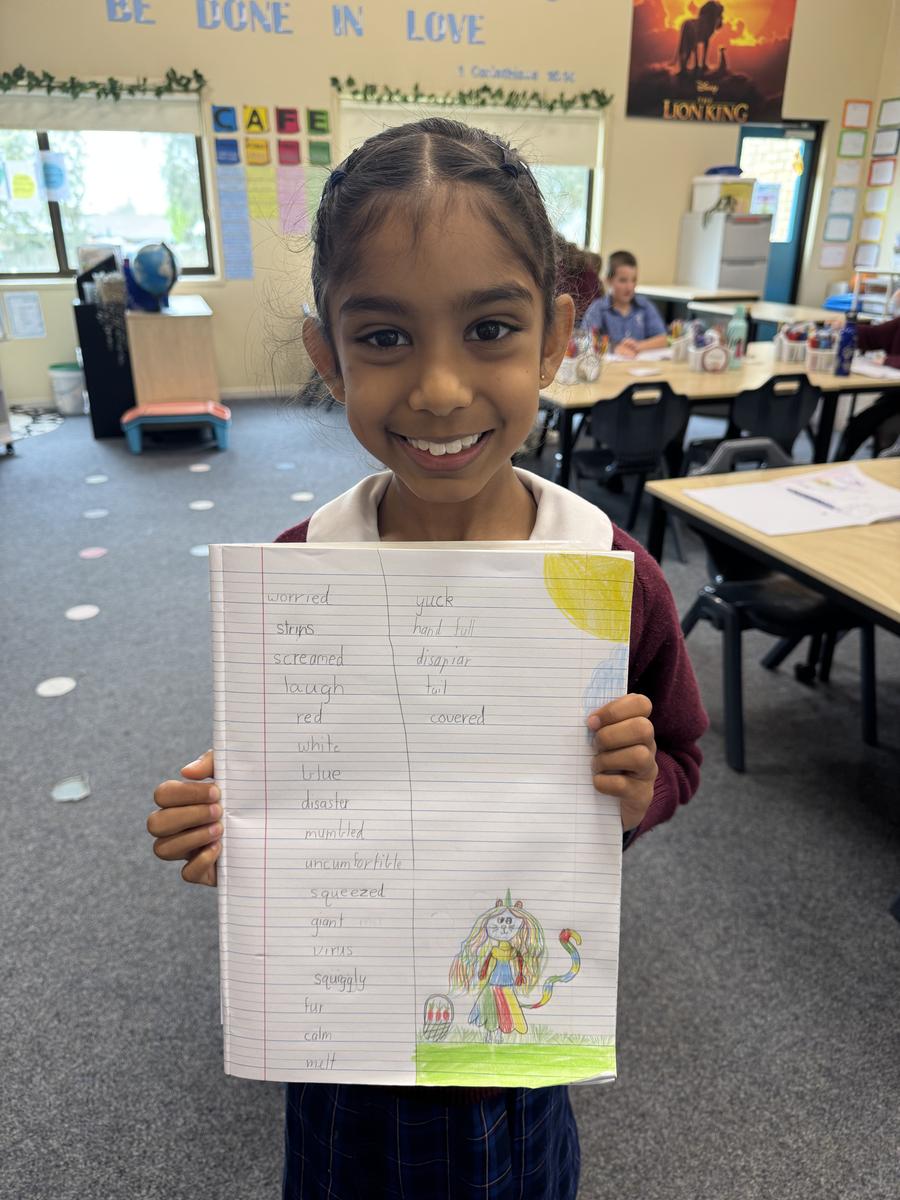 BE DONE IN LOVE
1 Corinthians 16:14
Disney
THE
LION KING
CAFE
worried
strips
screamed
laugh
red
white
blue
disaster
mumbled
uncumfortible
squeezed
giant
virus
squiggly
fur
calm
melt
yuck
hand full
disapiar
tail
covered